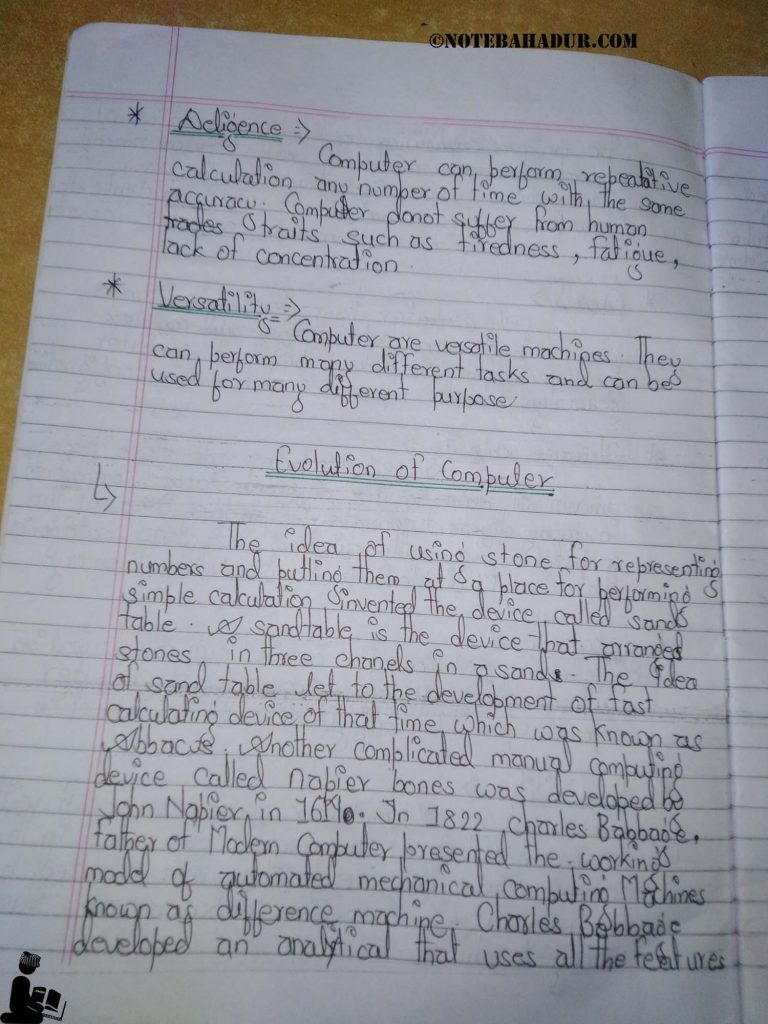 ©NOTEBAHADUR.COM
* Deligence ⇒
Computer can perform repeatative
calculation any number of time with the same
accuracy. Computer donot suffer from human
straits such as tiredness, fatigue,
lack of concentration.
* Versatility ⇒
Computer are versatile machines. They
can perform many different tasks and can be
used for many different purpose
Evolution of Computer
↳
The idea of using stone for representing
numbers and putting them at a place for performing
simple calculation invented the device called sand
table. A sandtable is the device that arranged
stones in three chanels in a sand. The idea
of sand table let to the development of fast
calculating device of that time which was known as
Abbacus. Another complicated manual computing
device called napier bones was developed be
John Napier in In 1822 Charles Babbage,
father of Modern Computer presented the working
model of automated mechanical computing Machines
known as difference machine. Charles Babbage
developed an analytical that uses all the features